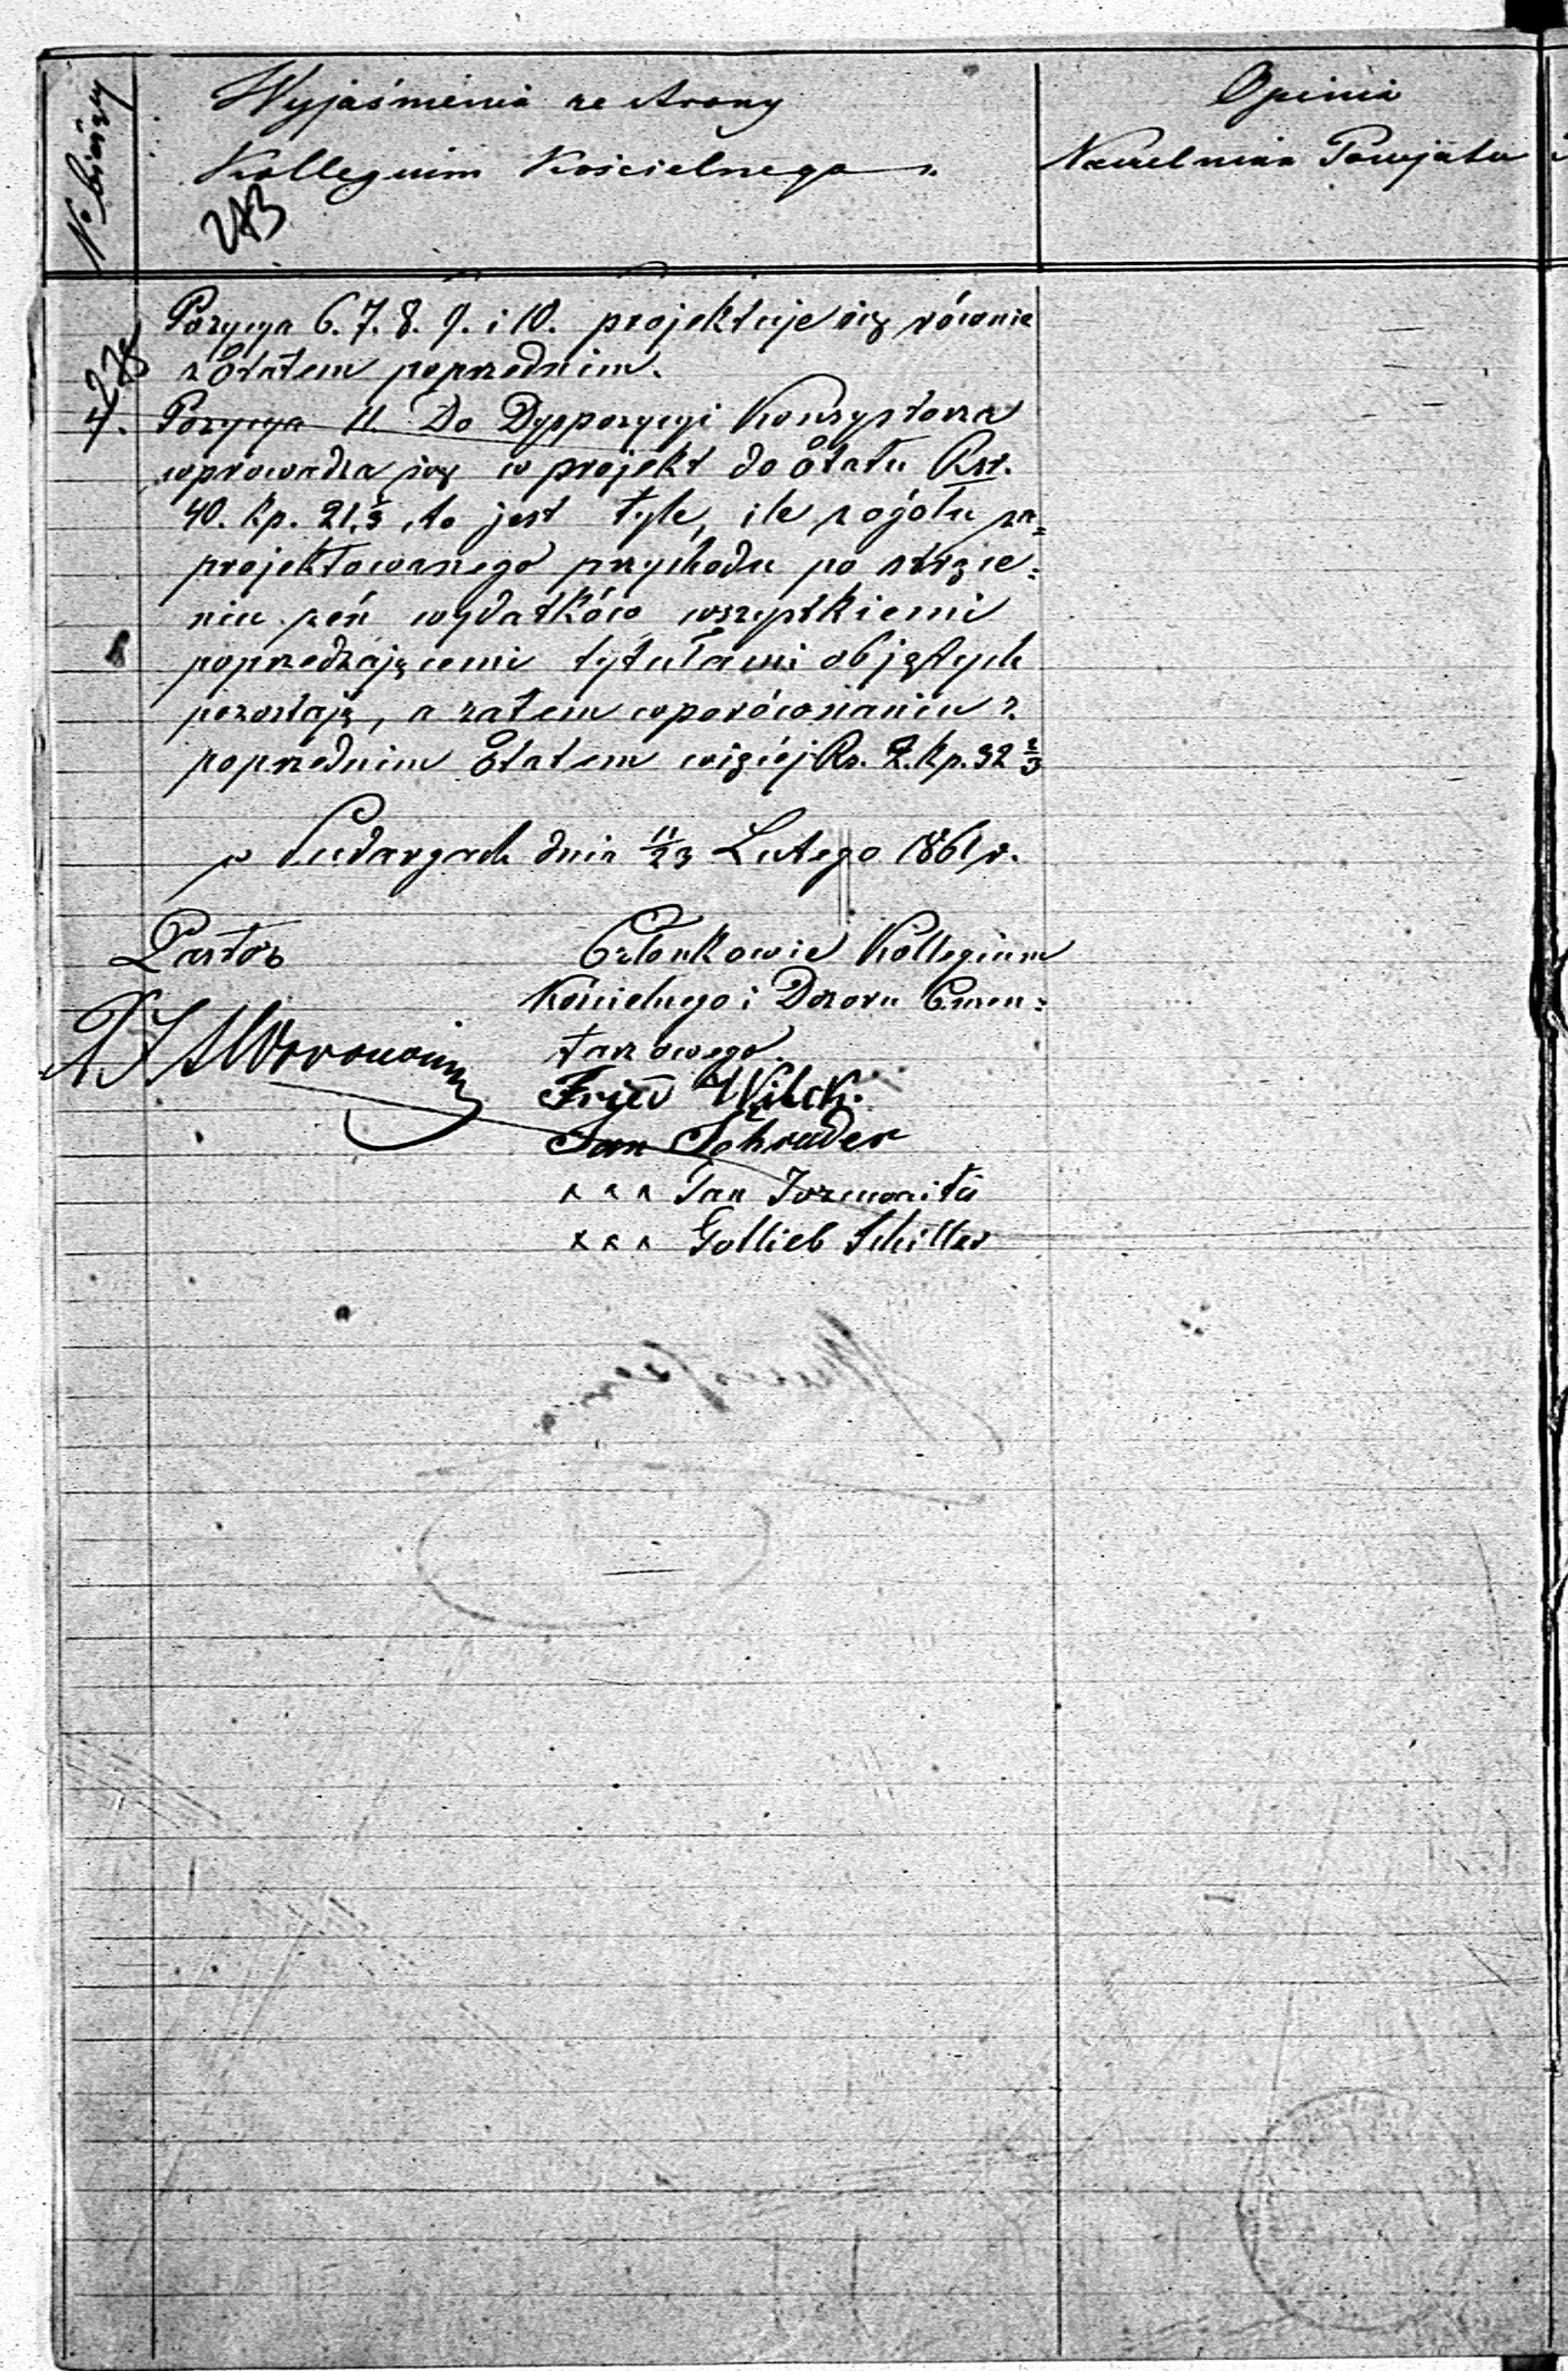 No bieżący
Wyjaśnienia ze strony
Kollegium Kościelnego
Opinia
Naczelnika Powjatu
243
Pozycya 6. 7. 8. 9. i 10. projektuje się równie
z Etatem poprzednim.
7. Pozycya 11. Do Dyspozycyi Konsystorza
wprowadza się w projekt do Etatu Rsr.
40. kp. 21 1/3, to jest tyle, ile z ogółu za=
projektowanego przychodu po strące=
niu zeń wydatków wszystkiemi
poprzedzającemi tytułami objętych
pozostaję, a zatem wporównaniu z
poprzednim Etatem więcéj Rs. 2. kp. 32 2/3
w Sudargach dnia 11/23 Lutego 1861 r.
Pastor
Członkowie Kollegium
Kościelnego i Dozoru Cmen=
tarzowego
Fried Wilck.
Jan Schrader
x x x Jan
x x x Gottlieb Schiller